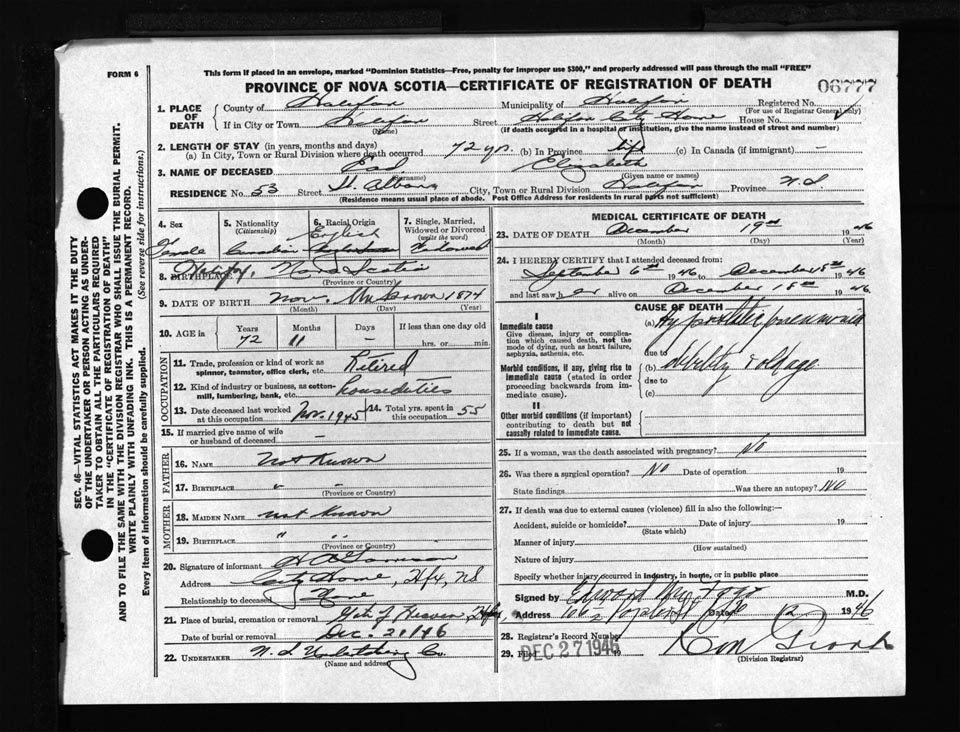 FORM 6
This form if placed in an envelope, marked "Dominion Statistics—Free, penalty for improper use $300," and properly addressed will pass through the mail "FREE"
PROVINCE OF NOVA SCOTIA—CERTIFICATE OF REGISTRATION OF DEATH
06777
1. PLACE OF DEATH
County of Halifax Municipality of Halifax Registered No.
(For use of Registrar General only)
If in City or Town Halifax Street Halifax City Home House No.
(Name) (If death occurred in a hospital or institution, give the name instead of street and number)
2. LENGTH OF STAY (in years, months and days)
(a) In City, Town or Rural Division where death occurred 72 yrs. (b) In Province life (c) In Canada (if immigrant) —
3. NAME OF DECEASED Elizabeth
(Surname) (Given name or names)
RESIDENCE No. 53 Street St. Albans City, Town or Rural Division Halifax Province N.S.
(Residence means usual place of abode. Post Office Address for residents in rural parts not sufficient)
4. Sex
Female
5. Nationality
(Citizenship)
Canadian
6. Racial Origin
English
7. Single, Married, Widowed or Divorced
(write the word)
Widowed
8. BIRTHPLACE Halifax, Nova Scotia
(Province or Country)
9. DATE OF BIRTH Nov. Unknown 1874
(Month) (Day) (Year)
10. AGE in
Years Months Days If less than one day old
72 11 — hrs. or min.
OCCUPATION
11. Trade, profession or kind of work as spinner, teamster, office clerk, etc. Retired
12. Kind of industry or business, as cotton-mill, lumbering, bank, etc. house duties
13. Date deceased last worked at this occupation Nov. 1945
14. Total yrs. spent in this occupation 55
15. If married give name of wife or husband of deceased —
FATHER
16. NAME Not Known
17. BIRTHPLACE " "
(Province or Country)
MOTHER
18. MAIDEN NAME not known
19. BIRTHPLACE " "
(Province or Country)
20. Signature of informant
Address City Home, Hfx, NS
Relationship to deceased None
21. Place of burial, cremation or removal
Date of burial or removal Dec. 21/46
22. UNDERTAKER N.S. Undertaking Co.
(Name and address)
MEDICAL CERTIFICATE OF DEATH
23. DATE OF DEATH December 19th 1946
(Month) (Day) (Year)
24. I HEREBY CERTIFY that I attended deceased from:
September 6th 1946 to December 18th 1946
and last saw her alive on December 18th 1946.
CAUSE OF DEATH
I
Immediate cause
Give disease, injury or complication which caused death, not the mode of dying, such as heart failure, asphyxia, asthenia, etc.
(a) Hypostatic pneumonia
due to
Morbid conditions, if any, giving rise to immediate cause (stated in order proceeding backwards from immediate cause).
(b) debility & old age
due to
(c)
II
Other morbid conditions (if important) contributing to death but not causally related to immediate cause.
25. If a woman, was the death associated with pregnancy? NO
26. Was there a surgical operation? NO Date of operation 19
State findings Was there an autopsy? NO
27. If death was due to external causes (violence) fill in also the following:—
Accident, suicide or homicide? Date of injury 19
(State which)
Manner of injury
(How sustained)
Nature of injury
Specify whether injury occurred in industry, in home, or in public place
Signed by Edward M.D.
Address Date 1946
28. Registrar's Record Number
29. Filed DEC 27 1946 19
(Division Registrar)
SEC. 46—VITAL STATISTICS ACT MAKES IT THE DUTY
OF THE UNDERTAKER OR PERSON ACTING AS UNDER-
TAKER TO OBTAIN ALL THE PARTICULARS REQUIRED
IN THE "CERTIFICATE OF REGISTRATION OF DEATH"
AND TO FILE THE SAME WITH THE DIVISION REGISTRAR WHO SHALL ISSUE THE BURIAL PERMIT.
WRITE PLAINLY WITH UNFADING INK. THIS IS A PERMANENT RECORD.
Every item of information should be carefully supplied. (See reverse side for instructions.)